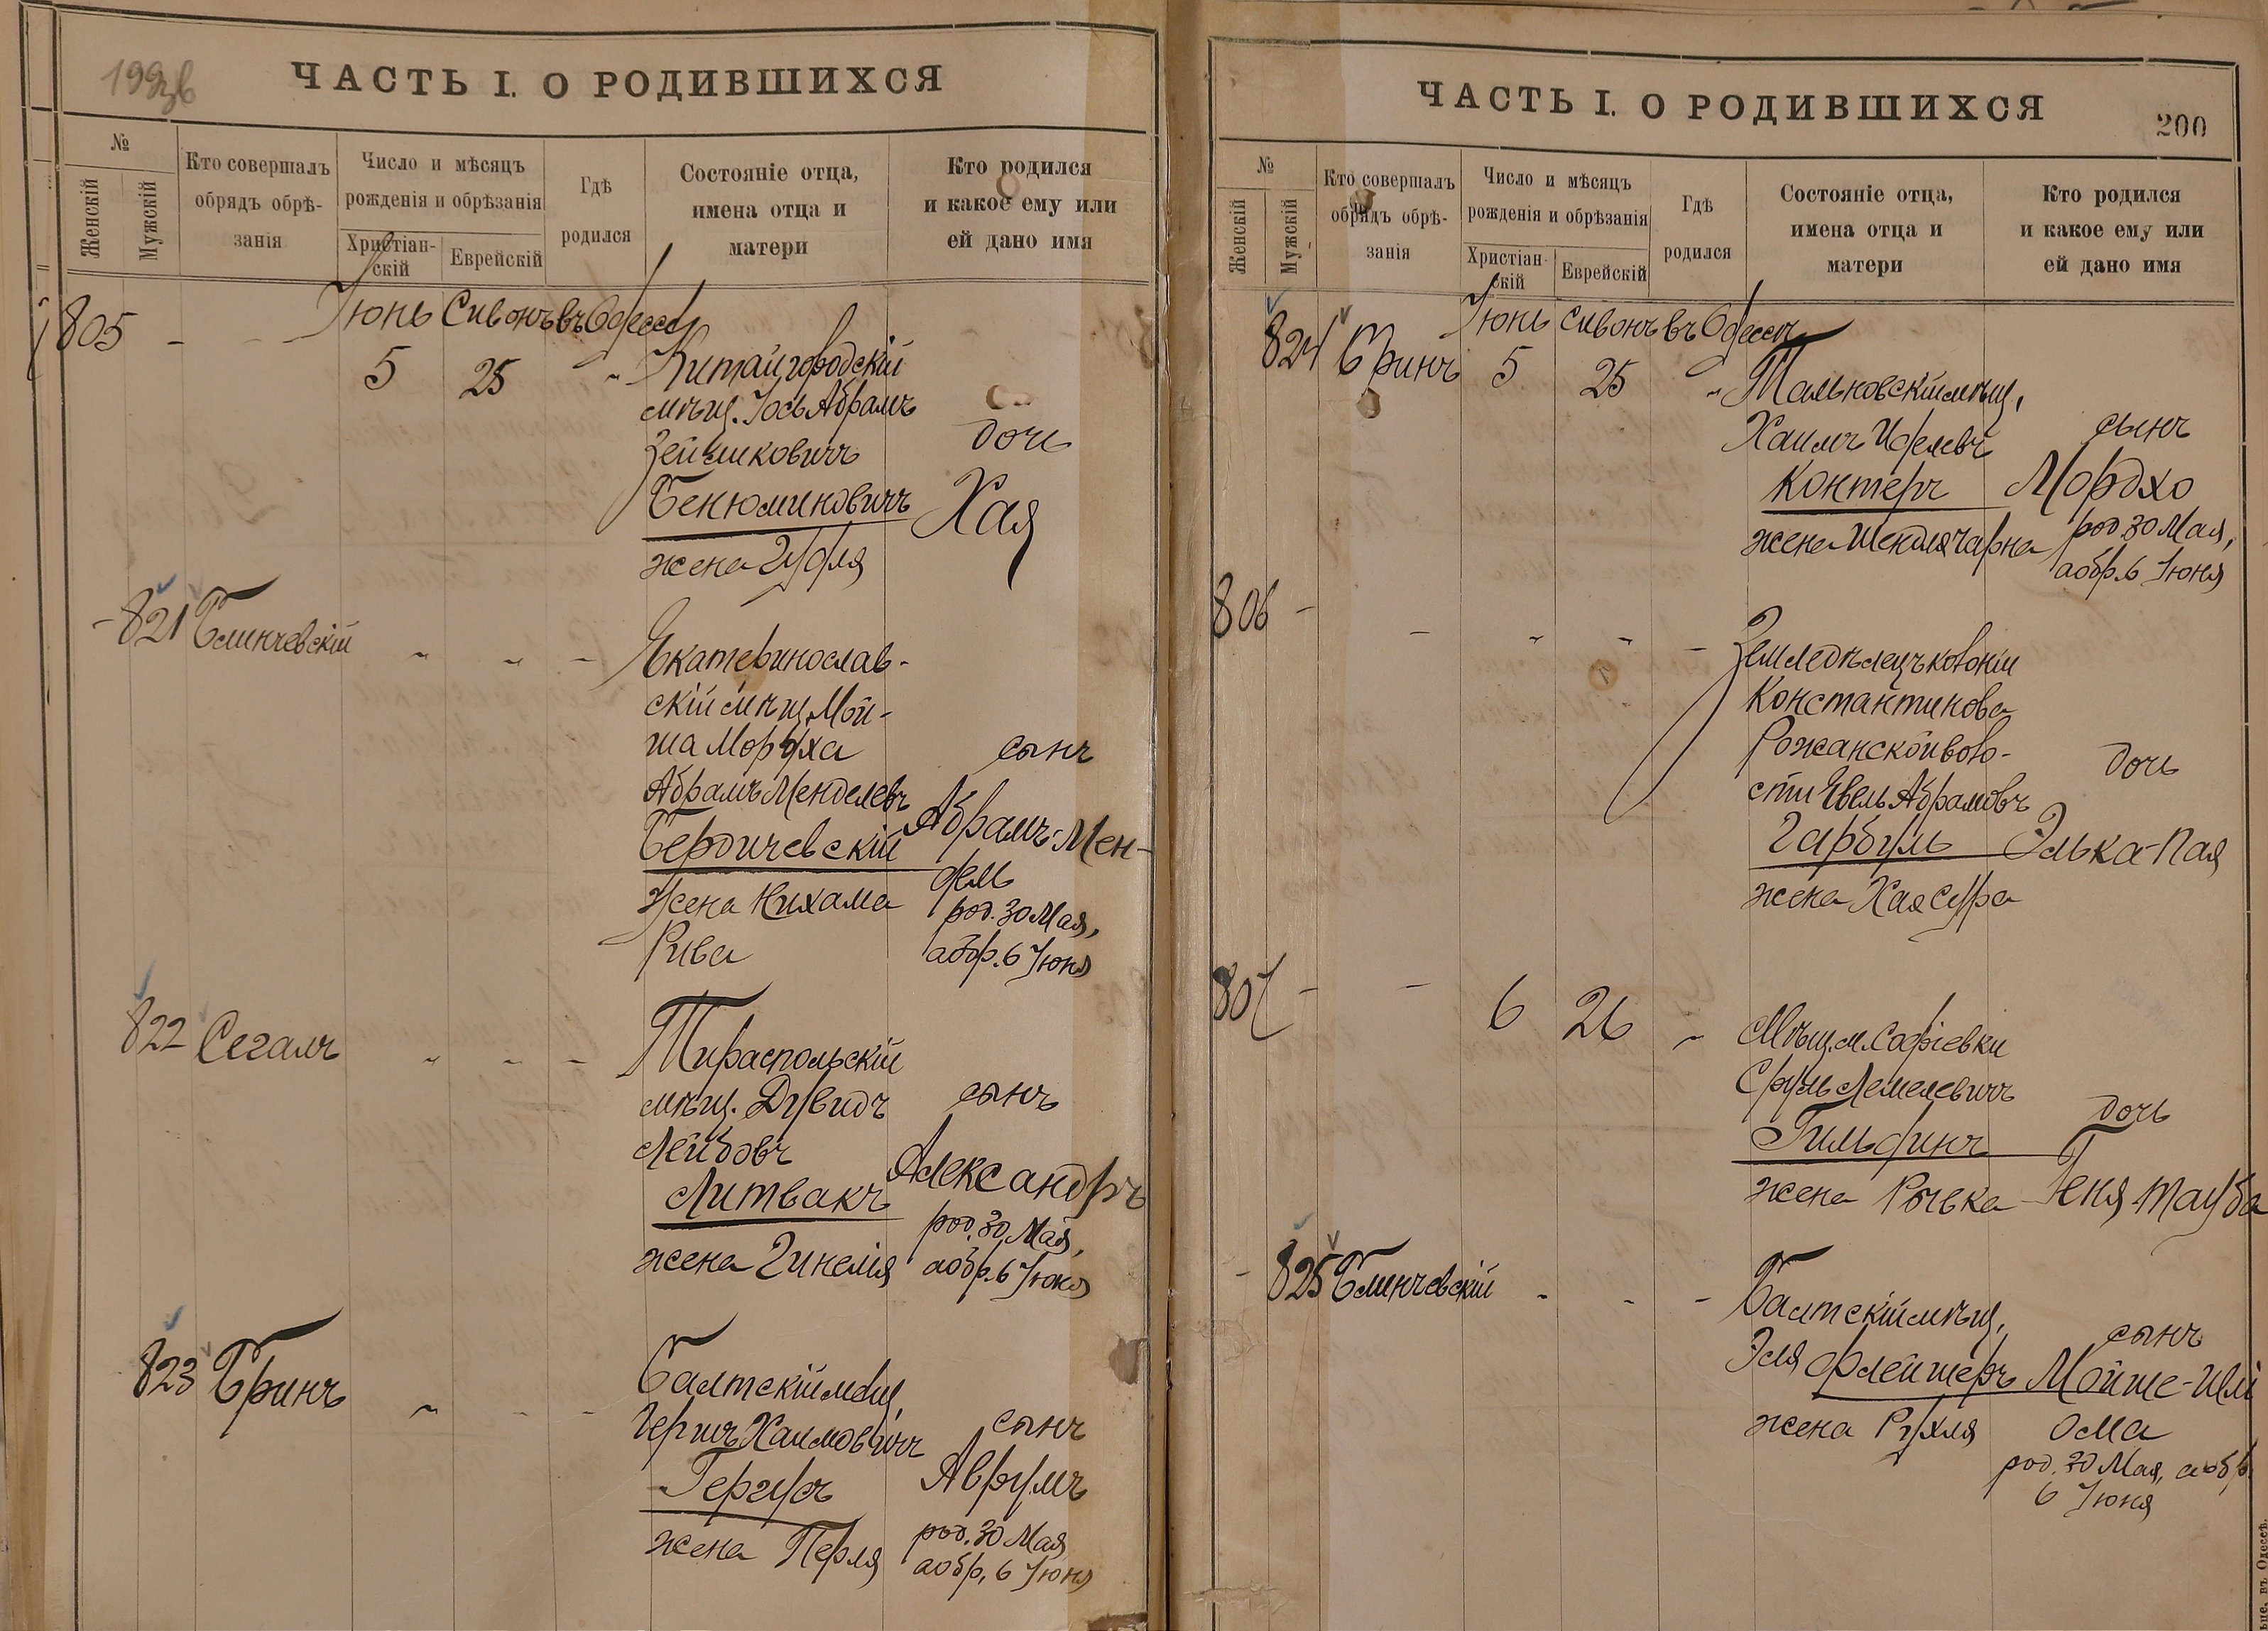 199 зв
ЧАСТЬ I. О РОДИВШИХСЯ
№
Женскій
Мужскій
Кто совершалъ
обрядъ обрѣ-
занія
Число и мѣсяцъ
рожденія и обрѣзанія
Христіан-
скій
Еврейскій
Гдѣ
родился
Состояніе отца,
имена отца и
матери
Кто родился
и какое ему или
ей дано имя
805 - - Іюнь Сивонъ въ Одессѣ
5 25 " Китайгородскій
мѣщ. Іось Абрамъ
Зейликовичъ
дочь
Бенюминовичъ
Хая
жена Гудля
821 Блинчевскій " " " Екатеринослав-
скій мѣщ. Мой-
ша Мордха
сынъ
Абрамъ Менделевъ
Бердичевскій
Абрамъ-Мен-
дель
жена Нихама
Рива
род. 30 Мая,
а обр. 6 Іюня
822 Сегалъ " " " Тираспольскій
мѣщ. Дувидъ
сынъ
Лейбовъ
Литвакъ
Александръ
жена Гинелія
род. 30 Мая,
а обр. 6 Іюня
823 Бринъ " " " Балтскій мѣщ.
Гершъ Хаимовичъ
сынъ
Гергусъ
Аврумъ
жена Перля
род. 30 Мая
а обр. 6 Іюня
ЧАСТЬ I. О РОДИВШИХСЯ
200
№
Женскій
Мужскій
Кто совершалъ
обрядъ обрѣ-
занія
Число и мѣсяцъ
рожденія и обрѣзанія
Христіан-
скій
Еврейскій
Гдѣ
родился
Состояніе отца,
имена отца и
матери
Кто родился
и какое ему или
ей дано имя
Іюнь Сивонъ въ Одессѣ
824 Бринъ 5 25 " Тальновскій мѣщ.
Хаимъ
сынъ
Контеръ
Мордхо
жена Шендля Чарна
род. 30 Мая,
а обр. 6 Іюня
806 - - " " - Земледѣлецъ колоніи
Константиновка
Рожанской воло-
сти Евель Абрамовъ
дочь
Гарбуль
Элька-Пая
жена Хая Сура
807 - - 6 26 " Мѣщ. м. Софіевки
Сруль Лемелевичъ
дочь
Гильфинъ
Геня Тауба
жена Рывка
825 Блинчевскій " " " Балтскій мѣщ.
сынъ
Эля Флейшеръ
Мойше-Шлі
ома
жена Рухля
род. 30 Мая, а обр.
6 Іюня
въ Одессѣ.